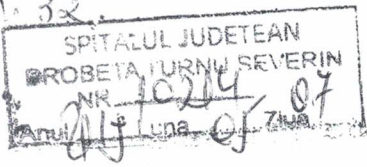 SPITALUL JUDETEAN
DROBETA TURNU SEVERIN
NR. 10214
Anul Luna 05 Ziua 07